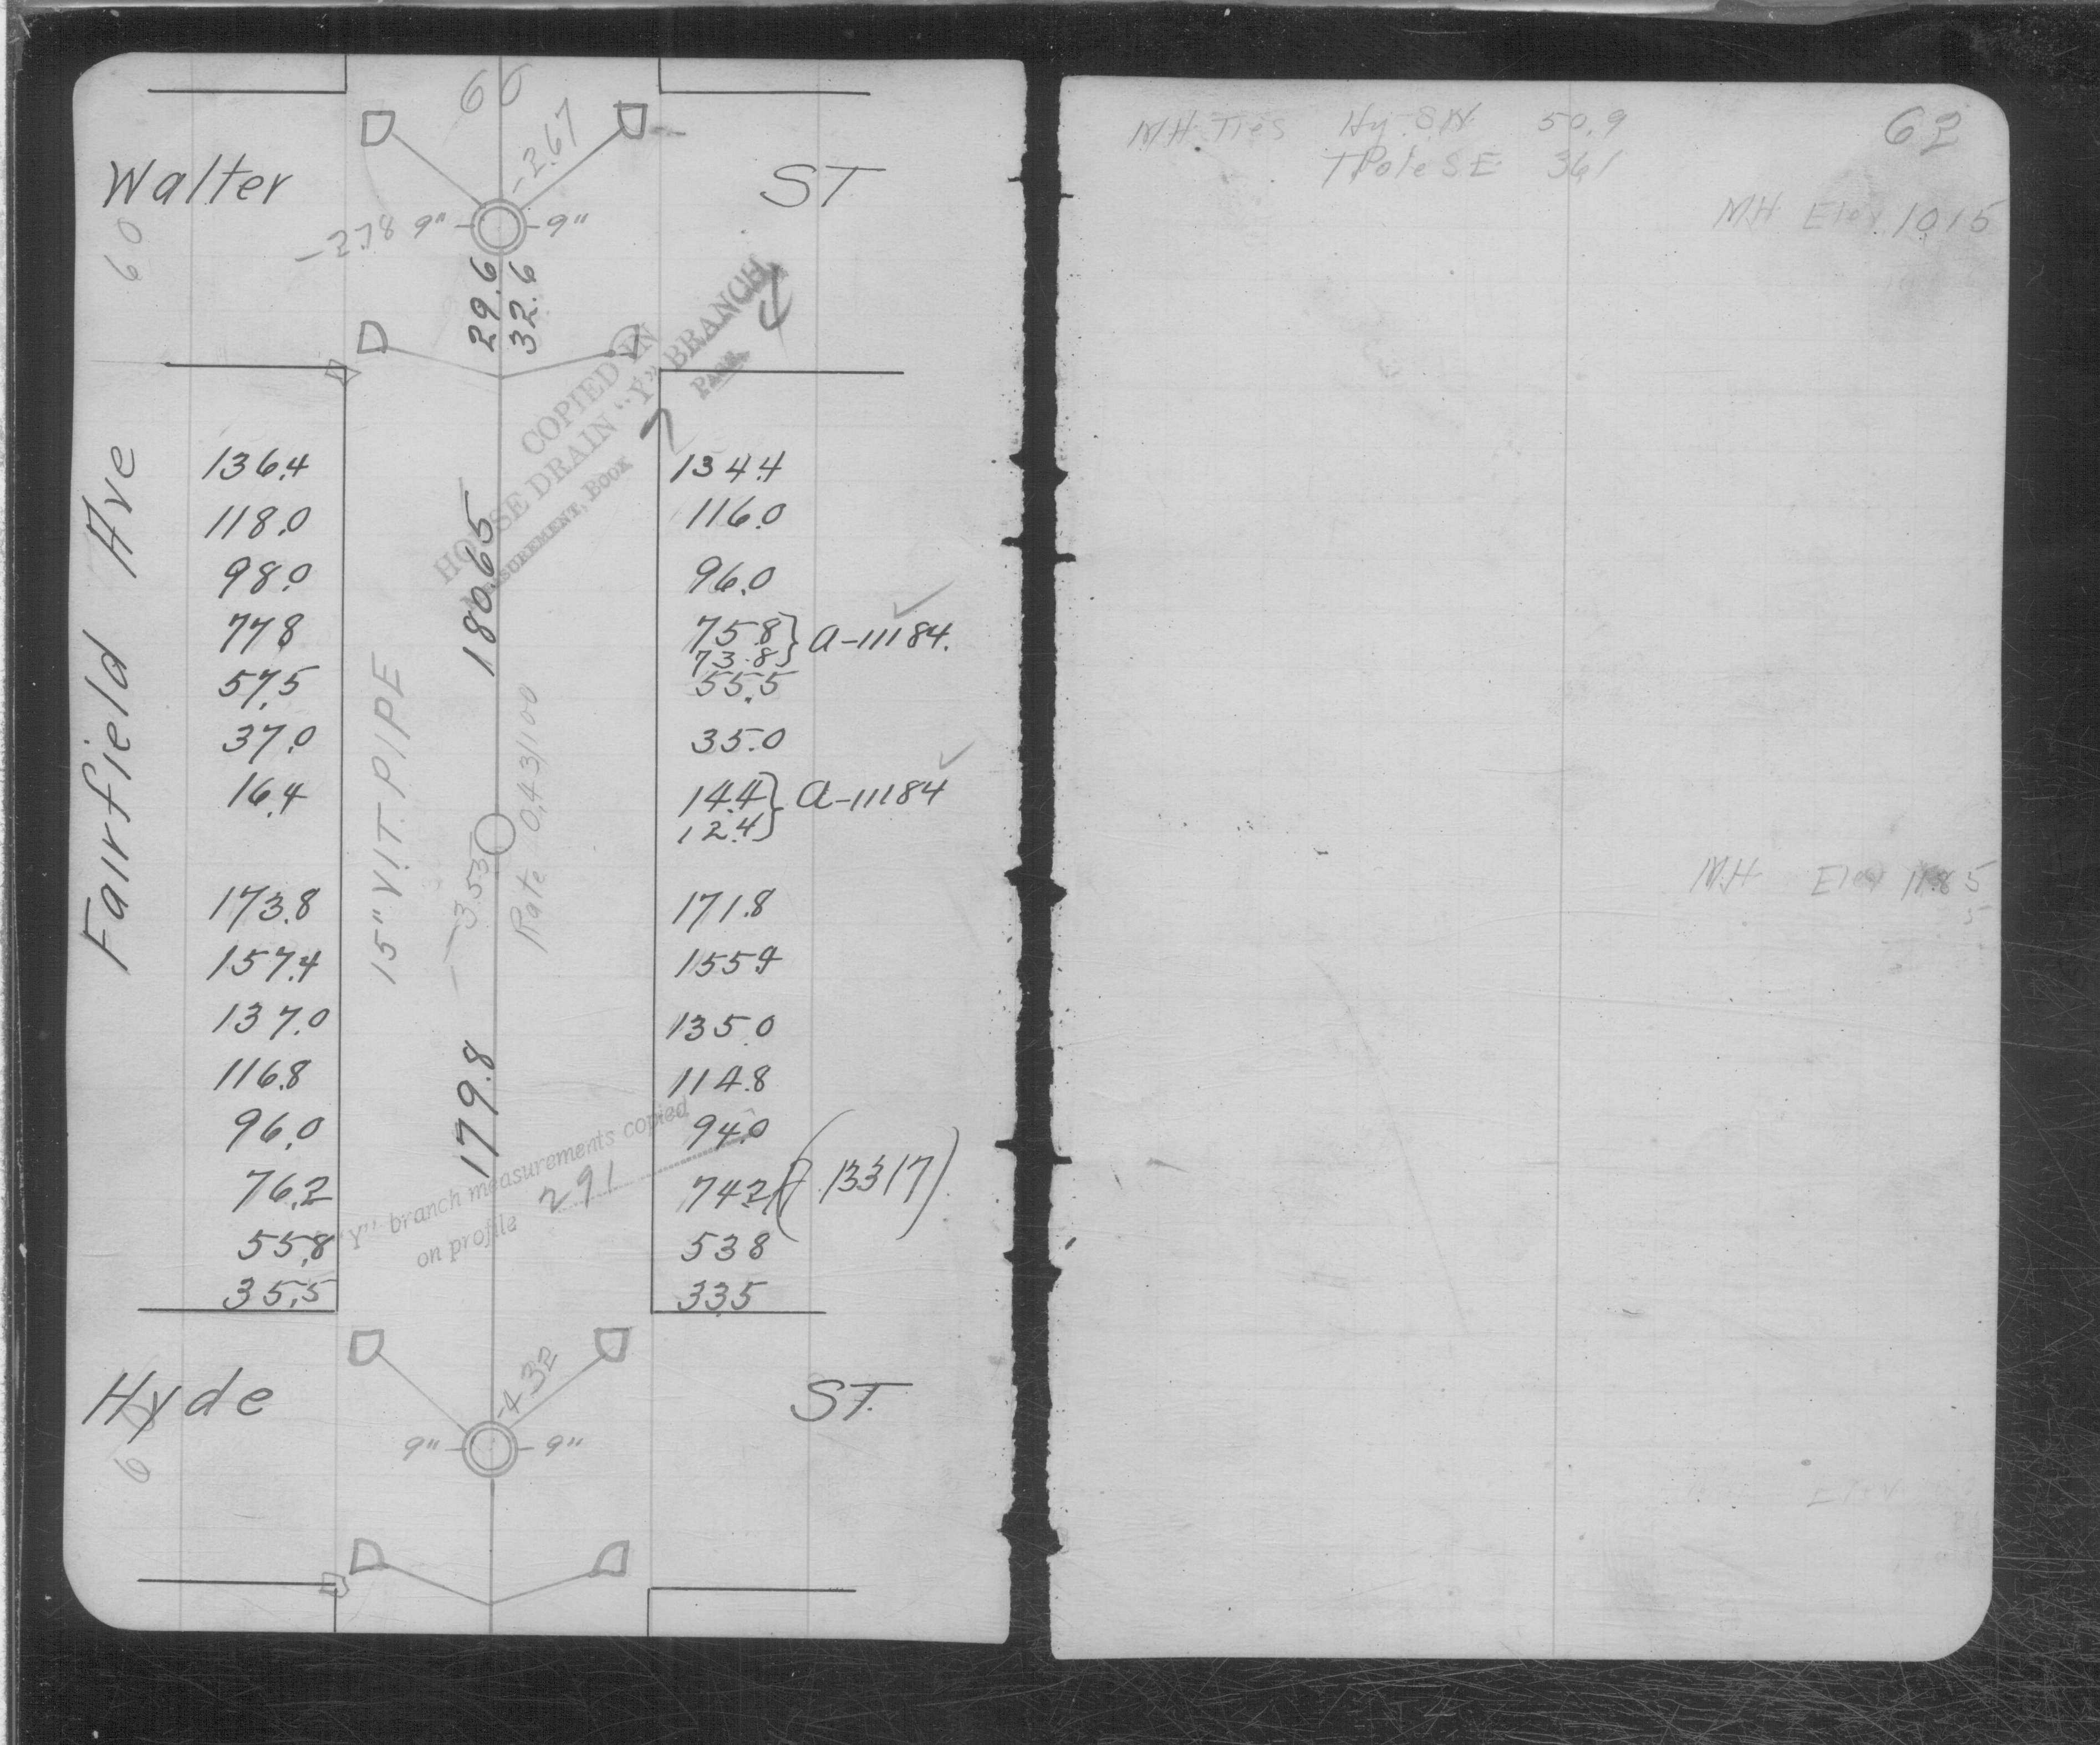 60
-2.67
Walter ST
60
-2.78 9" 9"
29.6
32.6
COPIED IN
HOUSE DRAIN "Y" BRANCH
MEASUREMENT, BOOK 7 PAGE 4
Fairfield Ave
136.4 134.4
118.0 116.0
98.0 96.0
77.8 75.8 } a-11184.
73.8
57.5 55.5
37.0 35.0
16.4 14.4 } a-11184
12.4
180.65
15" VIT. PIPE
Rate 0.43/100
-3.53
173.8 171.8
157.4 155.4
137.0 135.0
116.8 114.8
96.0 94.0
76.2 74.2 (13317)
55.8 53.8
35.5 33.5
179.8
"Y" branch measurements copied
on profile 291
Hyde ST.
60
-4.32
9" 9"
62
M.H. Ties Hy. S.W. 50.9
T Pole S.E. 36.1
M.H. Elev 10.15
M.H. Elev 11.85
Elev